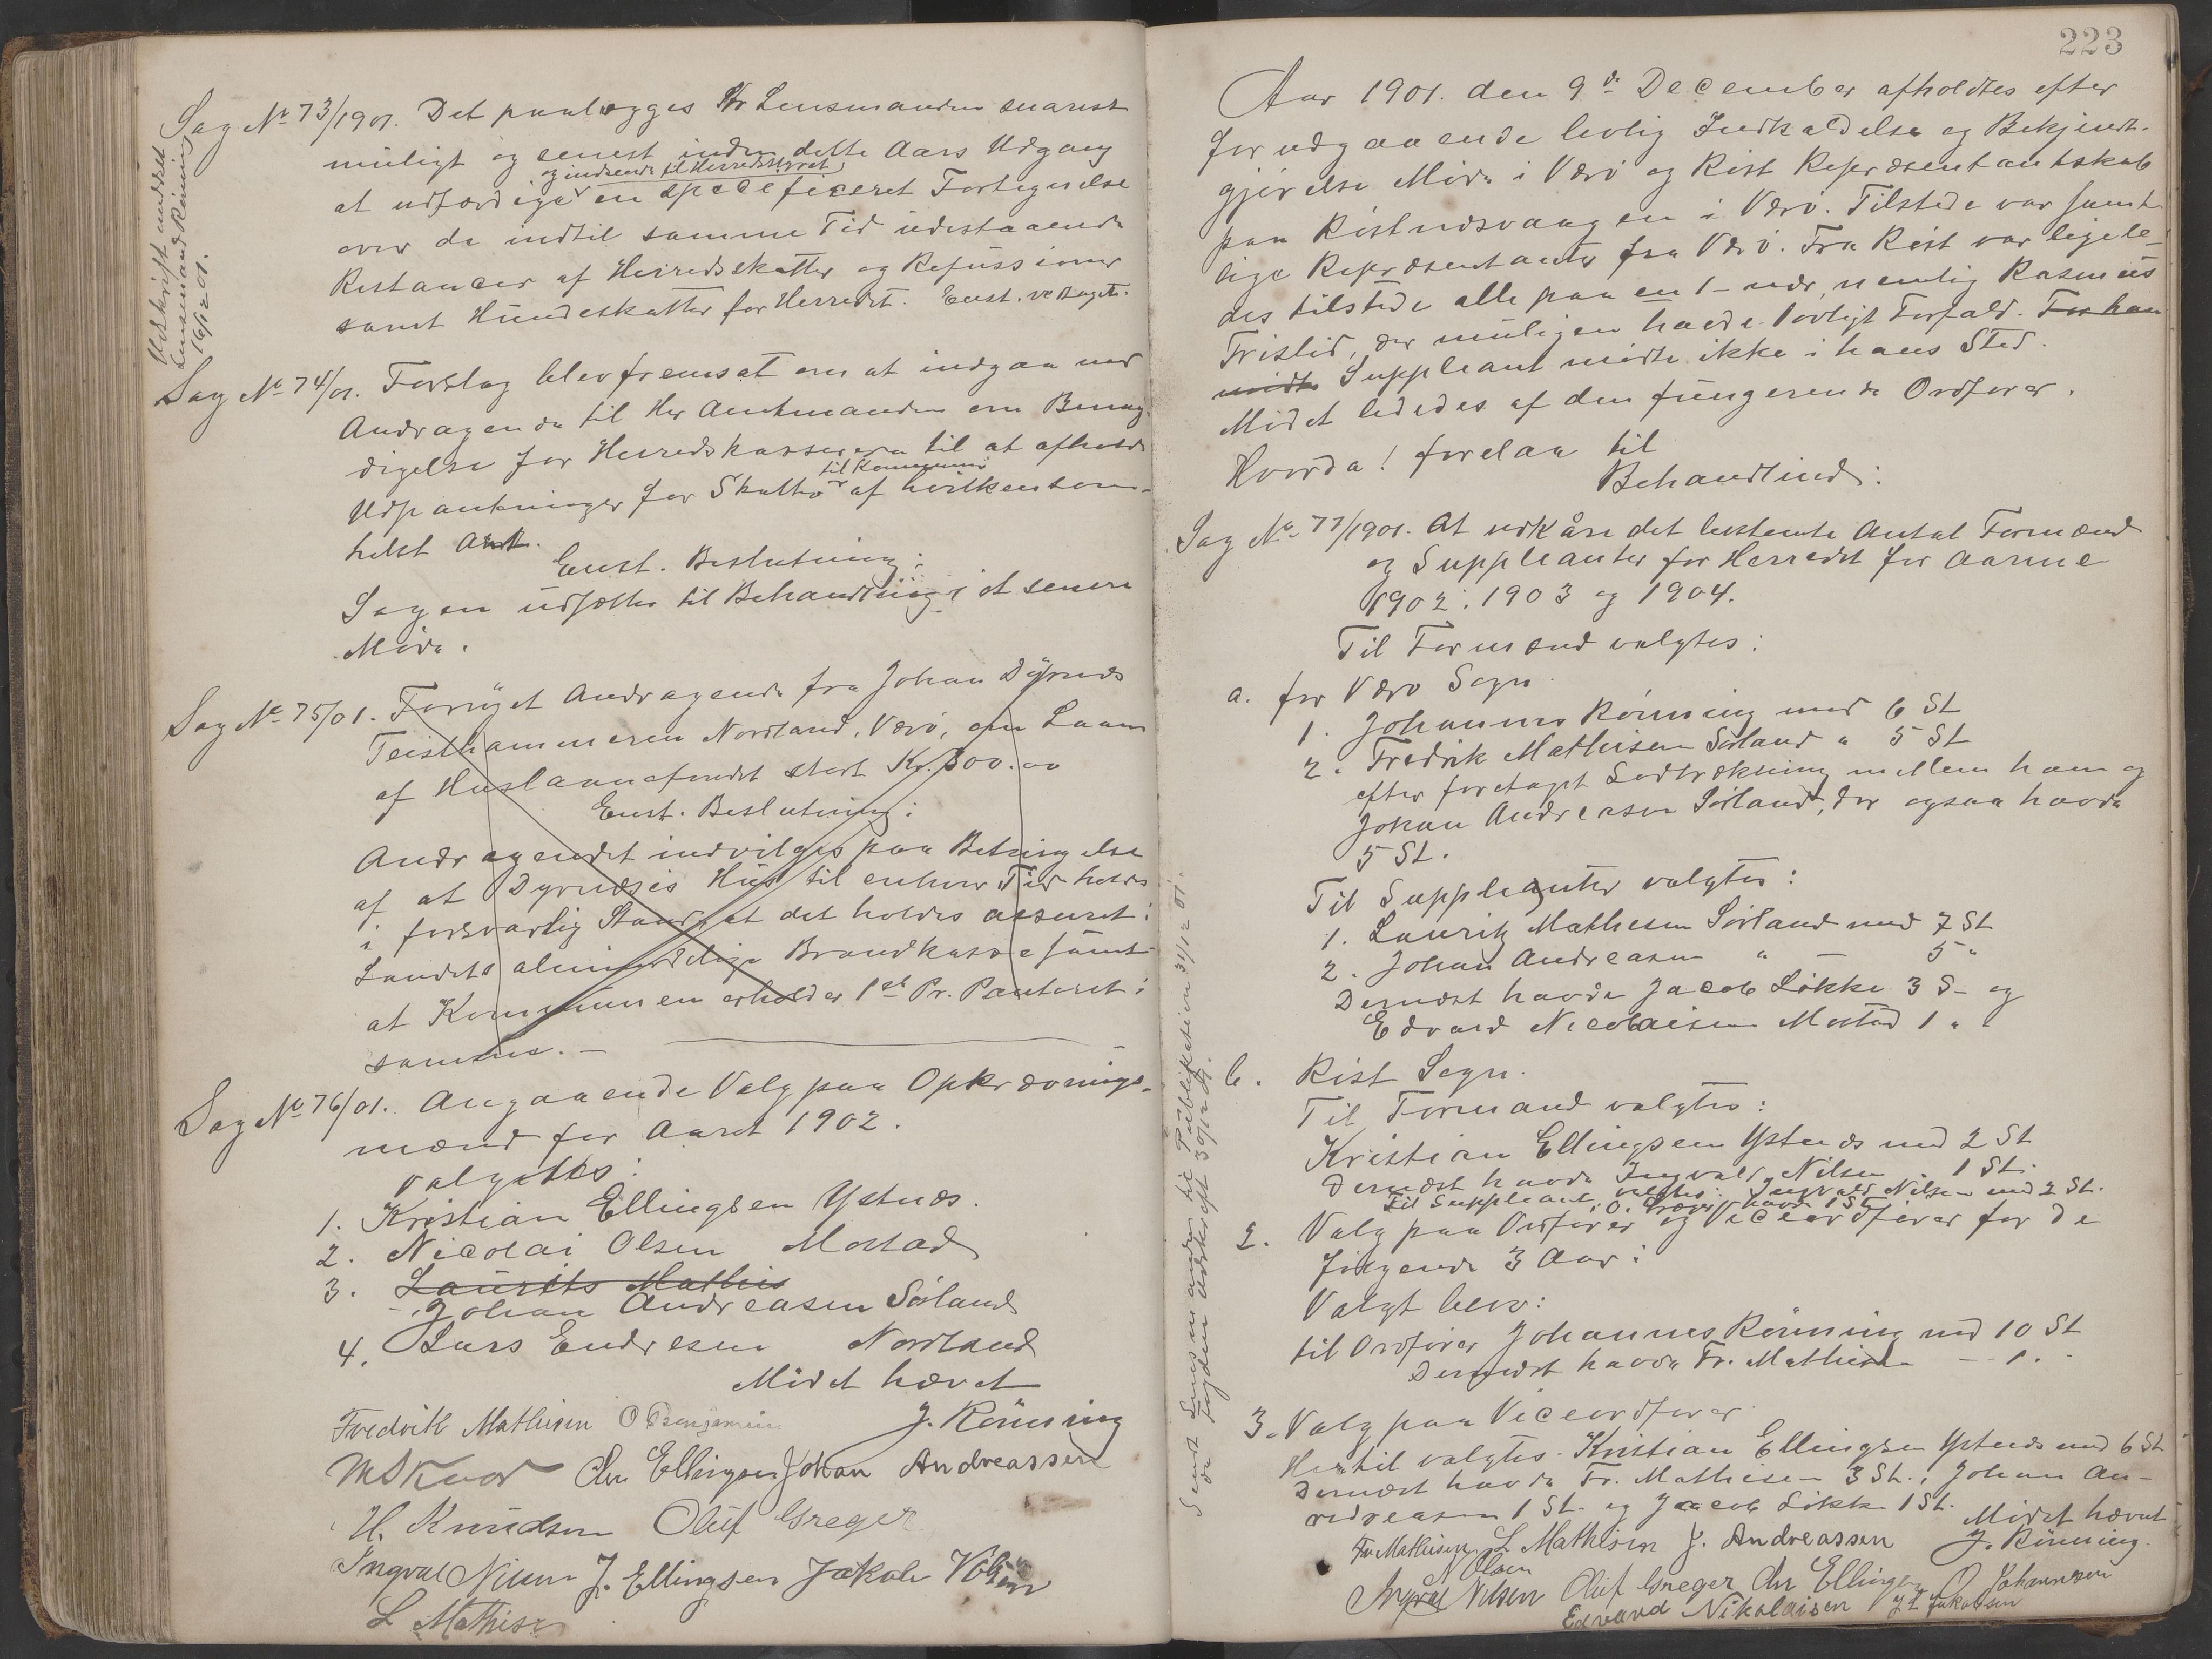 Udskrift meddelt
Lensmand Rönning
16/12 01.
Sag No 73/1901. Det paalægges Hr Lensmanden snarest
muligt og senest inden dette Aars Udgang
og indsende til Herredsstyret
at udfærdige en specificeret Fortegnelse
over de indtil samme Tid udestaaende
Restancer af Herredsskatter og Refusioner
samt Hundeskatter for Herredet. Enst. vedtaget.
Sag No 74/01. Forslag blev fremsat om at indgaa med
Andragende til Hr Amtmanden om Bemyn-
digelse for Herredskassereren til at afholde
til Kommunen
Udpantninger for Skatter af hvilkensom-
helst Art.
Enst. Beslutning:
Sagen udsættes til Behandling i et senere
Möde.
Sag No 75/01. Fornyet Andragende fra Johan Dyrnes
Teisthammeren Nordland, Værö, om Laan
af Huslaanefondet stort Kr. 300.00
Enst. Beslutning:
Andragendet indvilges paa Betingelse
af at Dyrnæses Hus til enhver Tid holdes
i forsvarlig Stand, at det holdes assuret i
Landets almindelige Brandkasse samt
at Kommunen erholder 1st Pr. Panteret i
samme. –
Sag No 76/01. Angaaende Valg paa Opkrævnings-
mænd for Aaret 1902.
Valgtes:
1. Kristian Ellingsen Ystnes.
2. Nicolai Olsen Mostad
3. Laurits Mathis
Johan Andreasen Sörland
4. Lars Endresen Nordland
Mödet hævet
Fredrik Mathisen O Benjaminsen J. Rönning
Chr Ellingsen Johan Andreassen
H. Knudsen Oluf Greger
Ingval Nilsen J. Ellingsen Jakob
L Mathisen
223
Aar 1901. den 9de December afholdtes efter
forudgaaende lovlig Indkaldelse og Bekjendt-
gjörelse Möde i Værö og Röst Repræsentantskab
paa Röstnesvaagen i Værö. Tilstede var samt-
lige Repræsentanter fra Værö. Fra Röst var ligele-
des tilstede alle paa en 1 – nær, nemlig Rasmus
Tristid, der muligen havde lovligt Forfald. For ham
mödte Suppleant mödte ikke i hans Sted.
Mödet lededes af den fungerende Ordförer.
Hvorda! forelaa til
Behandlind:
Sag No 77/1901. At udkåre det bestemte Antal Formænd
og Suppleanter for Herredet for Aarene
1902. 1903 og 1904.
Til Formænd valgtes:
a. for Værö Sogn
1. Johannes Rönning med 6 St
2. Fredrik Mathisen Sörland " 5 St
efter foretaget Lodtrækning mellem ham og
Johan Andreasen Sörland, der ogsaa havde
5 St.
Til Suppleanter valgtes:
1. Lauritz Mathisen Sörland med 7 St
2. Johan Andreasen " – 5 "
Dernæst havde Jacob Lökke 3 S – og
Edvard Nicolaisen Mostad 1 "
b. Röst Sogn.
Til Formand valgtes:
Kristian Ellingsen Ystnes med 2 St
Dernæst havde Ingvald Nilsen 1 St.
Til Suppleant valgtes: Ingvald Nilsen med 2 St.
O. Greger havde 1 St.
2. Valg paa Ordförer og Viceordförer for de
fölgende 3 Aar:
Valgt blev:
til Ordförer Johannes Rönning med 10 St
Dernæst havde Fr. Mathisen – 1. –
3. Valg paa Viceordförer.
Hertil valgtes. Kristian Ellingsen Ystnes med 6 St
Dernæst havde Fr. Mathisen 3 St., Johan An-
dreasen 1 St. og Jacob Lökke 1 St. Mödet hævet
Fr Mathisen L Mathisen J. Andreassen J. Rönning.
N Olsen
Ingval Nilsen Oluf Greger Chr Ellingsen O Johannesen
Edvard Nikolaisen J L Jakobsen
Sendt Lensmanden til Publikation 31/12 01.
Fogden Udskrift 30/12 01.